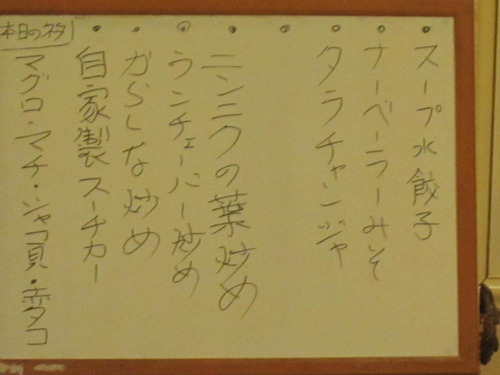 スープ水餃子
ナーベーラーみそ
タラチャンジャ
ニンニクの葉炒め
ランチェーバー炒め
からしな炒め
自家製スーチカー
本日の
マグロ・マチ・シャコ貝・赤タコ